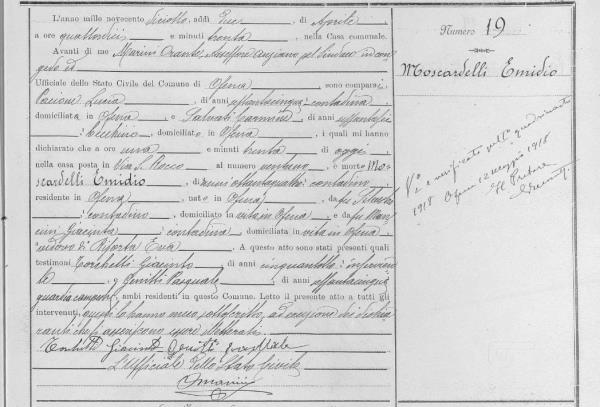 L'anno mille novecento diciotto, addì due, di Aprile,
a ore quattordici e minuti trenta, nella Casa comunale.
Avanti di me Marini Oronto, Assessore anziano pel Sindaco in con-
gedo ed
Ufficiale dello Stato Civile del Comune di Ofena, sono comparsi
Lucia, di anni cinque, contadina,
domiciliata in Ofena e Salvati, di anni
, domiciliato in Ofena, i quali mi hanno
dichiarato che a ore una e minuti trenta di oggi,
nella casa posta in Via S. Rocco al numero ventuno, è morto Mo-
scardelli Emidio, di anni ottantaquattro, contadino,
residente in Ofena, nato in Ofena, da fu
, contadino, domiciliato in vita in Ofena e da fu Man-
cini Giacinta, contadina, domiciliata in vita in Ofena,
vedovo di Eva. A questo atto sono stati presenti quali
testimoni Torchetti Giacinto, di anni cinquantotto, inservien-
te, e Genitti Pasquale, di anni
guardia campestre, ambi residenti in questo Comune. Letto il presente atto a tutti gli
intervenuti, questi lo hanno meco sottoscritto, ad eccezione dei dichia-
ranti che asseriscono essere illetterati.
Torchetti Giacinto Genitti Pasquale
L'Ufficiale dello Stato Civile
OMarini
Numero 19
Moscardelli Emidio
V° e verificato nell° quadrimestre
1918 Ofena 12 maggio 1918
Il Pretore